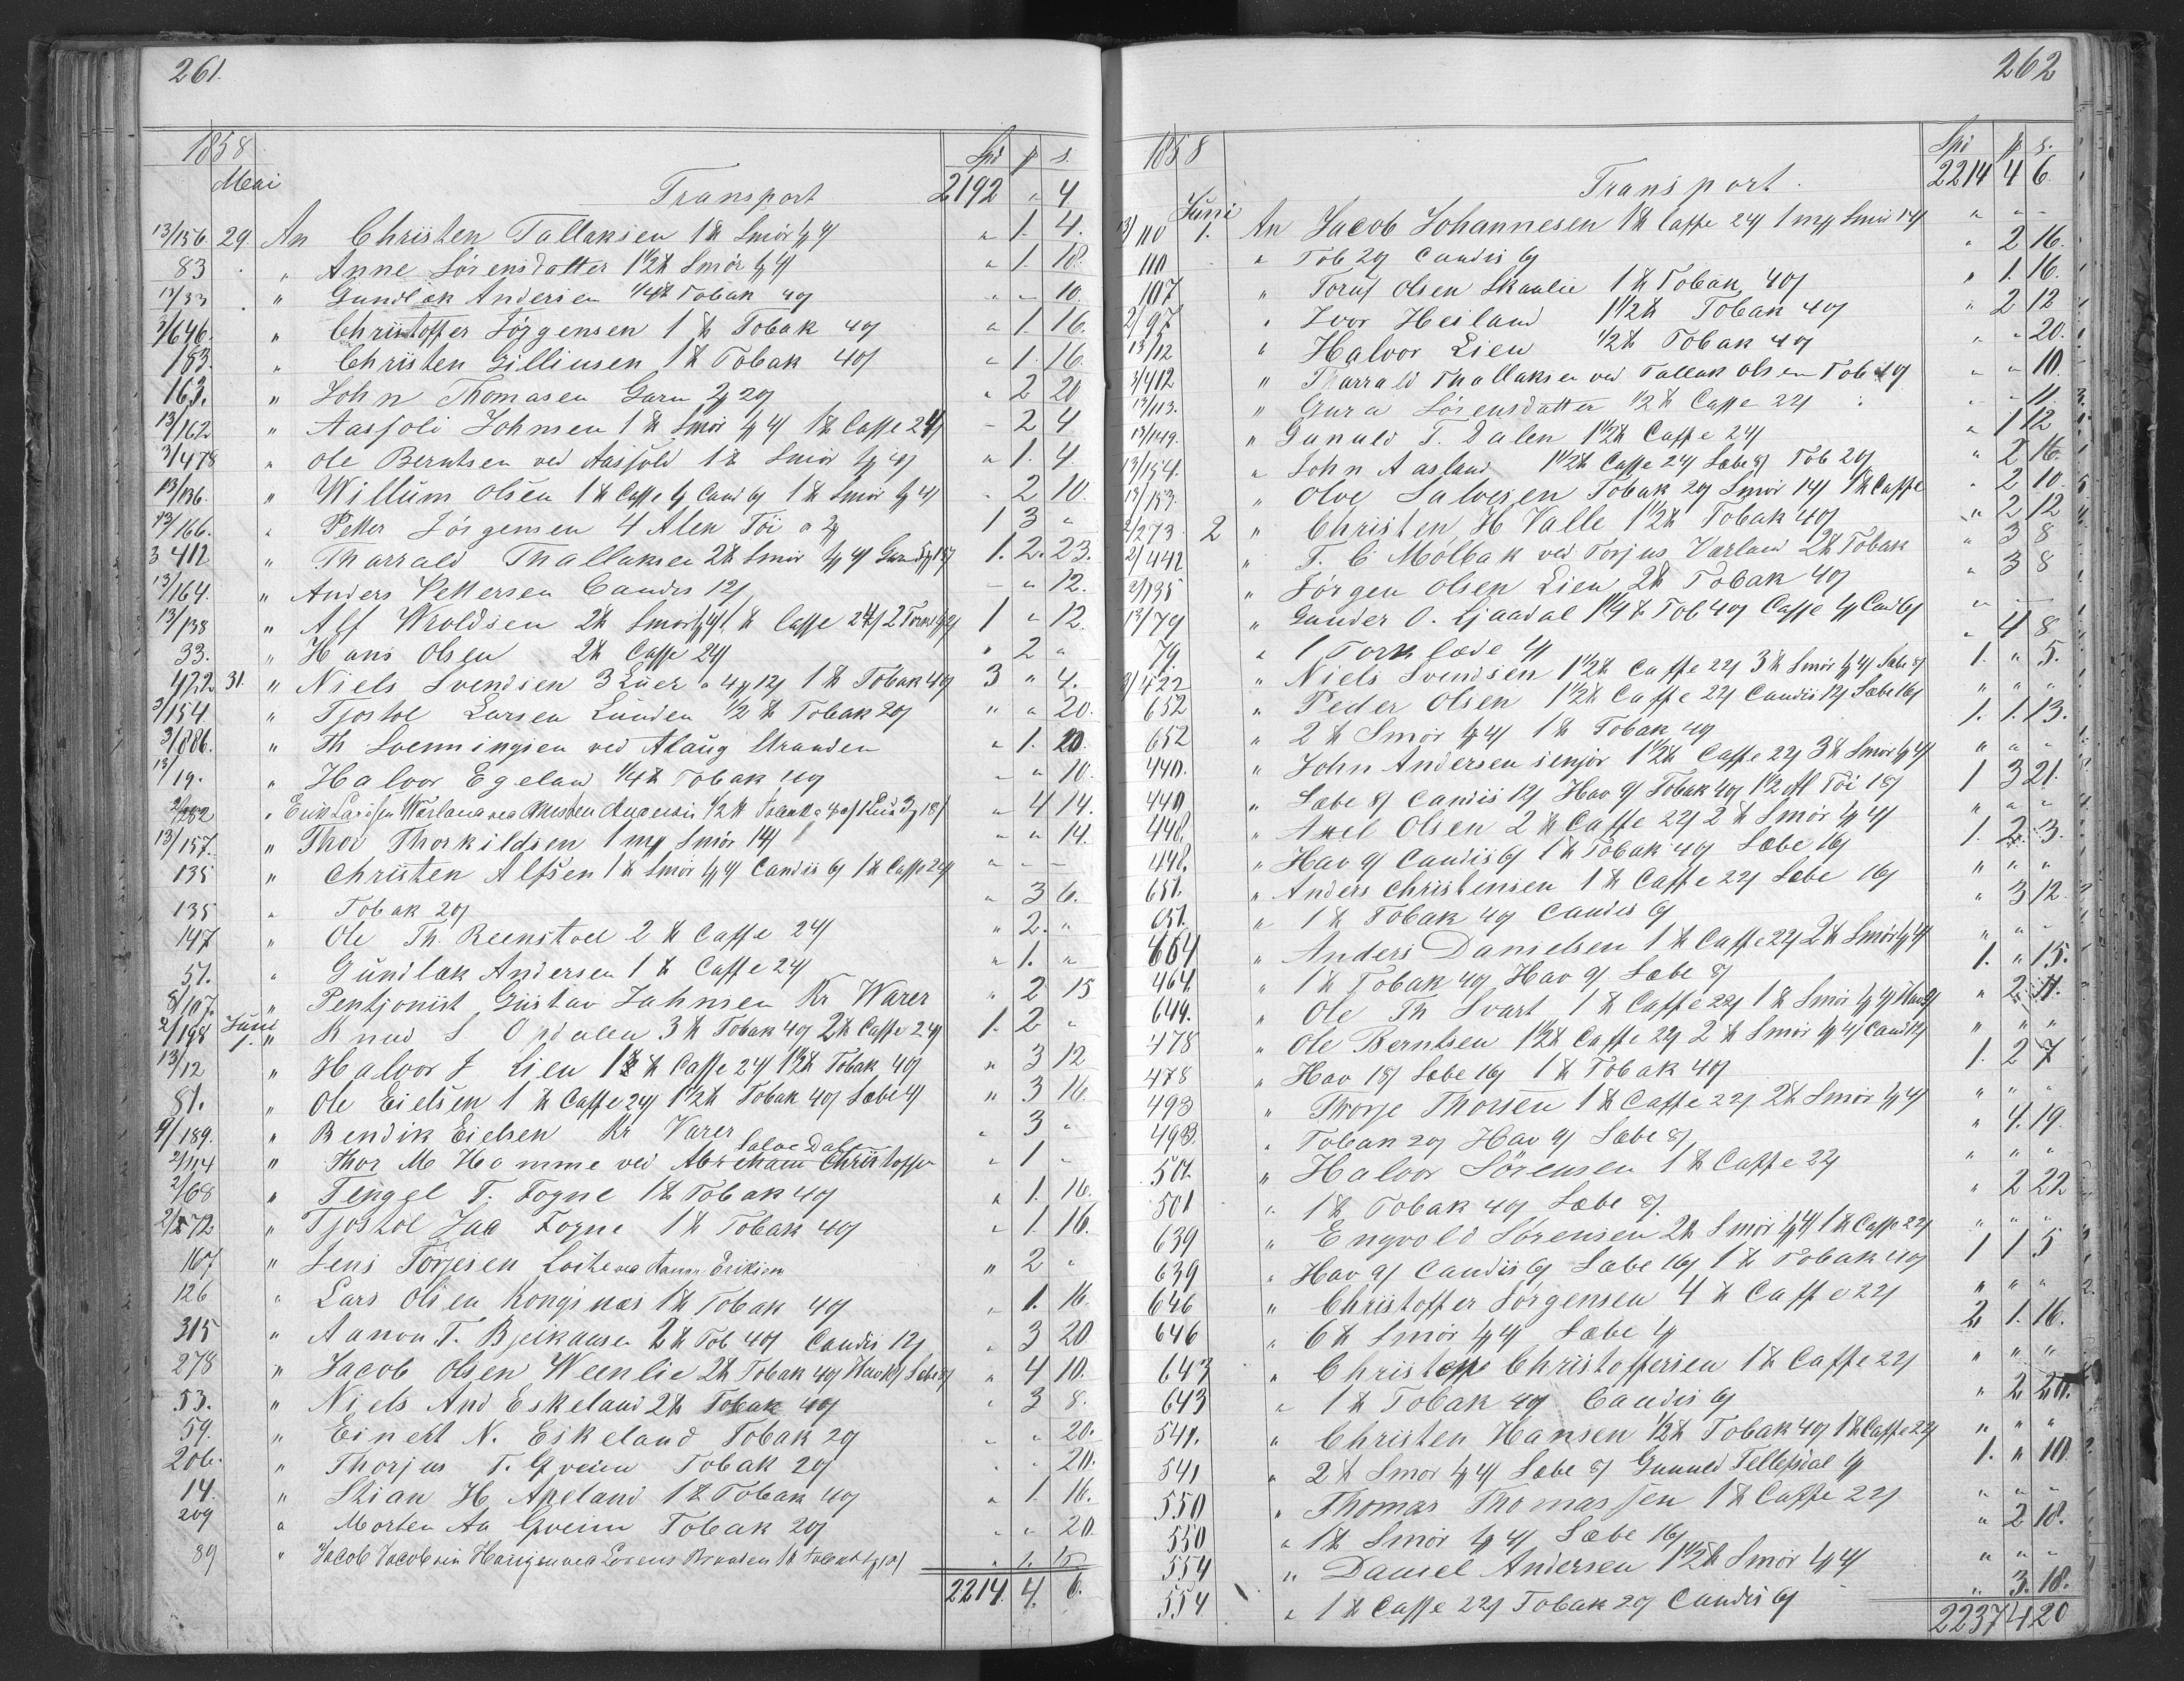 261.
1858 Spd ƥ s.
Mai Transport 2192 " 4
13/156. 29. An Christen Tallaksen 1 ℔ Smör 4 " 1. 4.
83 " Anne Sörensdatter 1 1/2 ℔ Smör " 1. 18.
13/33 " Gundlak Andersen 1/4 ℔ Tobak 40 " " 10.
2/646. " Christoffer Jörgensen 1 ℔ Tobak 40 " 1. 16.
183. " Christen Gilliusen 1 ℔ Tobak 40 " 1. 16.
163. " John Thomasen Garn 2 20 " 2 20
13/162 " Aasfoli Johnsen 1 ℔ Smör 1 ℔ Caffe 24 " 2 4
3/478 " Ole Berntsen ved Aasfold 1 ℔ Smör " 1. 4.
13/136. " Willum Olsen 1 ℔ Caffe Cand 6 1 ℔ Smör " 2 10.
13/166. " Petter Jörgensen 4 Alen Töi 1 3 "
3 412 " Tharrald Thallaksen 2 ℔ Smör 1. 2. 23.
13/164. " Anders Pettersen Candis 12 " " 12.
13/138 " Alf Wroldsen 2 ℔ Smör 1 ℔ Caffe 24 1 " 12.
33. " Hans Olsen 2 ℔ Caffe 24 " 2 "
422 31. " Niels Svendsen 3 Luer 1 ℔ Tobak 40 3 " 4.
3/154 " Tjostol Larsen Lunden 1/2 ℔ Tobak 20 " " 20.
3/886. " Th Svenningsen ved Aslaug Stranden " 1. 20.
13/19. " Halvor Egeland 1/4 ℔ Tobak 40 " " 10.
2/282 " Erik Larssen ved Christen Andersen 1/2 ℔ " 4 14.
13/157. " Thor Thorkildsen 1 mƥ Smör 14 " " 14.
135 " Christen Alfsen 1 ℔ Smör Candis 6 1 ℔ Caffe 24 " " "
135 " Tobak 20 " 3 6.
147 " Ole Th. Reenstoel 2 ℔ Caffe 24 " 2. "
51. " Gundlak Andersen 1 ℔ Caffe 24 " 1. "
8/107. " Pentjonist Gustav Jahnsen Kr Warer " 2 15
2/198 Juni 1. " Knud S. Opdalen 3 ℔ Tobak 40 2 ℔ Caffe 24 1. 2 "
13/12 " Halvor J. Lien 1 ℔ Caffe 24 1 1/2 ℔ Tobak 40 " 3 12
81. " Ole Eielsen 1 ℔ Caffe 24 1 1/2 ℔ Tobak 40 Sæbe 4 " 3 16.
9/189. " Bendik Eielsen Kr Varer " 3 "
2/114 " Thor M Homme ved Abreham Christoffer Salve Dale " 1 "
2/68 " Tengel T. Fogne 1 ℔ Tobak 40 " 1. 16.
2/272 " Tjostol Jaa Fogne 1 ℔ Tobak 40 " 1. 16.
167 " Jens Torjesen ved Eriksen " 2 "
126 " Lars Olsen Kongsnæs 1 ℔ Tobak 40 " 1. 16.
315 " Aanon T. Bjeikaasen 2 ℔ Tob 40 Candis 12 " 3 20
278 " Jacob Olsen Weenlie 2 ℔ Tobak 40 " 4 10.
53. " Niels And Eskeland 2 ℔ Tobak 40 " 3 8.
59. " Einert N. Eskeland Tobak 20 " " 20.
206. " Thorjus T. Qveim Tobak 20 " " 20.
14. " Stian H. Apeland 1 ℔ Tobak 40 " 1. 16.
209 " Morten Aa Qveim Tobak 20 " " 20.
89 " Jacob Jacobsen ved Lorens Brunden
2214 4. 6.
262
1858 Spd ƥ s.
Transport. 2214 4 6
13/110 Juni 1. An Jacob Johannesen 1 ℔ Caffe 24 1 mƥ Smör 14 " " "
110 " Tob 20 Candis 6 " 2 16.
107 " Toruf Olsen Skaalie 1 ℔ Tobak 40 " 1. 16.
2/97 " Ivor Heiland 1 1/2 ℔ Tobak 40 " 2 12
13/12 " Halvor Lien 1/2 ℔ Tobak 40 " " 20.
3/412 " Tharrald Thallaksen ved Tallak Olsen Tob " " 10.
13/113. " Gura Sörensdatter 1/2 ℔ Caffe 22 " " 11.
13/149. " Gunuld T. Dalen 1 1/2 ℔ Caffe 24 " 1 12
13/154. " John Aasland 1 1/2 ℔ Caffe 24 Sæbe 8 Tob 20 " 2 16.
13/153. " Olve Salvesen Tobak 20 Smör 14 1 ℔ Caffe " 2 10.
2/273 2 " Christen H Valle 1 1/2 ℔ Tobak 40 " 2 12
2/442 " T. C Mölbak ved Torjus Varland 2 ℔ Tobak " 3 8
2/135 " Jörgen Olsen Lien 2 ℔ Tobak 40 " 3 8
13/79 " Gunder O. Gjaadal 1 1/4 ℔ Tob 40 Caffe Cand 6 " "
79. " 1 Torklæde " 4 8
3/422 " Niels Svendsen 1 1/2 ℔ Caffe 22 3 ℔ Smör Sæbe 8 1. " 5.
652 " Peder Olsen 1 1/2 ℔ Caffe 22 Candis 12 Sæbe 16 " " "
652 " 2 ℔ Smör 1 ℔ Tobak 40 1. 1. 13.
440. " John Andersen senjor 1 1/2 ℔ Caffe 22 3 ℔ Smör " " "
440 " Sæbe 8 Candis 12 Hav 9 Tobak 40 1 1/2 Al Töi 18 1 3 21.
448. " Axel Olsen 2 ℔ Caffe 22 2 ℔ Smör " " "
448. " Hav 9 Candis 6 1 ℔ Tobak 40 Sæbe 16 1. 2. 3.
651. " Anders Christensen 1 ℔ Caffe 22 Sæbe 16 " " "
651. " 1 ℔ Tobak 40 Candis 6 " 3 12
464 " Anders Danielsen 1 ℔ Caffe 22 2 ℔ Smör " " "
464. " 1 ℔ Tobak 40 Hav 9 Sæbe 8 1. " 15.
649. " Ole Th Svart 1 ℔ Caffe 22 1 ℔ Smör Hav 9 " 2 11.
478 " Ole Berntsen 1 1/2 ℔ Caffe 22 2 ℔ Smör Cand 12 " " "
478 " Hav 18 Sæbe 16 1 ℔ Tobak 40 1. 2 7
493 " Thorje Thorsen 1 ℔ Caffe 22 2 ℔ Smör " " "
493. " Tobak 20 Hav 9 Sæbe 8 " 4. 19.
501. " Halvor Sörensen 1 ℔ Caffe 22 " " "
501 " 1 ℔ Tobak 40 Sæbe 8 " 2 22
639 " Engvold Sörensen 2 ℔ Smör 1 ℔ Caffe 22 " " "
639 " Hav 9 Candis 6 Sæbe 16 1 ℔ Tobak 40 1 1 5
646 " Christoffer Jörgensen 4 ℔ Caffe 22 " " "
646 " 6 ℔ Smör Sæbe 4 2 1. 16.
643 " Christoffer Christoffersen 1 ℔ Caffe 22 " " "
643 " 1 ℔ Tobak 40 Candis 6 " 2 20.
541. " Christen Hansen 1/2 ℔ Tobak 40 1 ℔ Caffe 22 " " "
541 " 2 ℔ Smör Sæbe 8 Gunuld Tellefsdal 1. " 10.
550 " Thomas Thomassen 1 ℔ Caffe 22 " " "
550 " 1 ℔ Smör Sæbe 16 " 2 18.
554 " Daniel Andersen 1 1/2 ℔ Smör " " "
554 " 1 ℔ Caffe 22 Tobak 20 Candis 6 " 3. 18.
2237 4 20